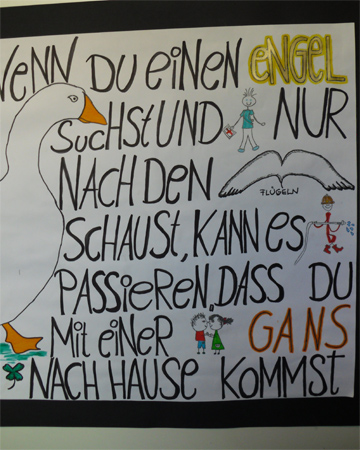 WENN DU EINEN ENGEL
SUCHST UND NUR
NACH DEN
FLÜGELN
SCHAUST, KANN ES
PASSIEREN, DASS DU
MIT EINER GANS
NACH HAUSE KOMMST